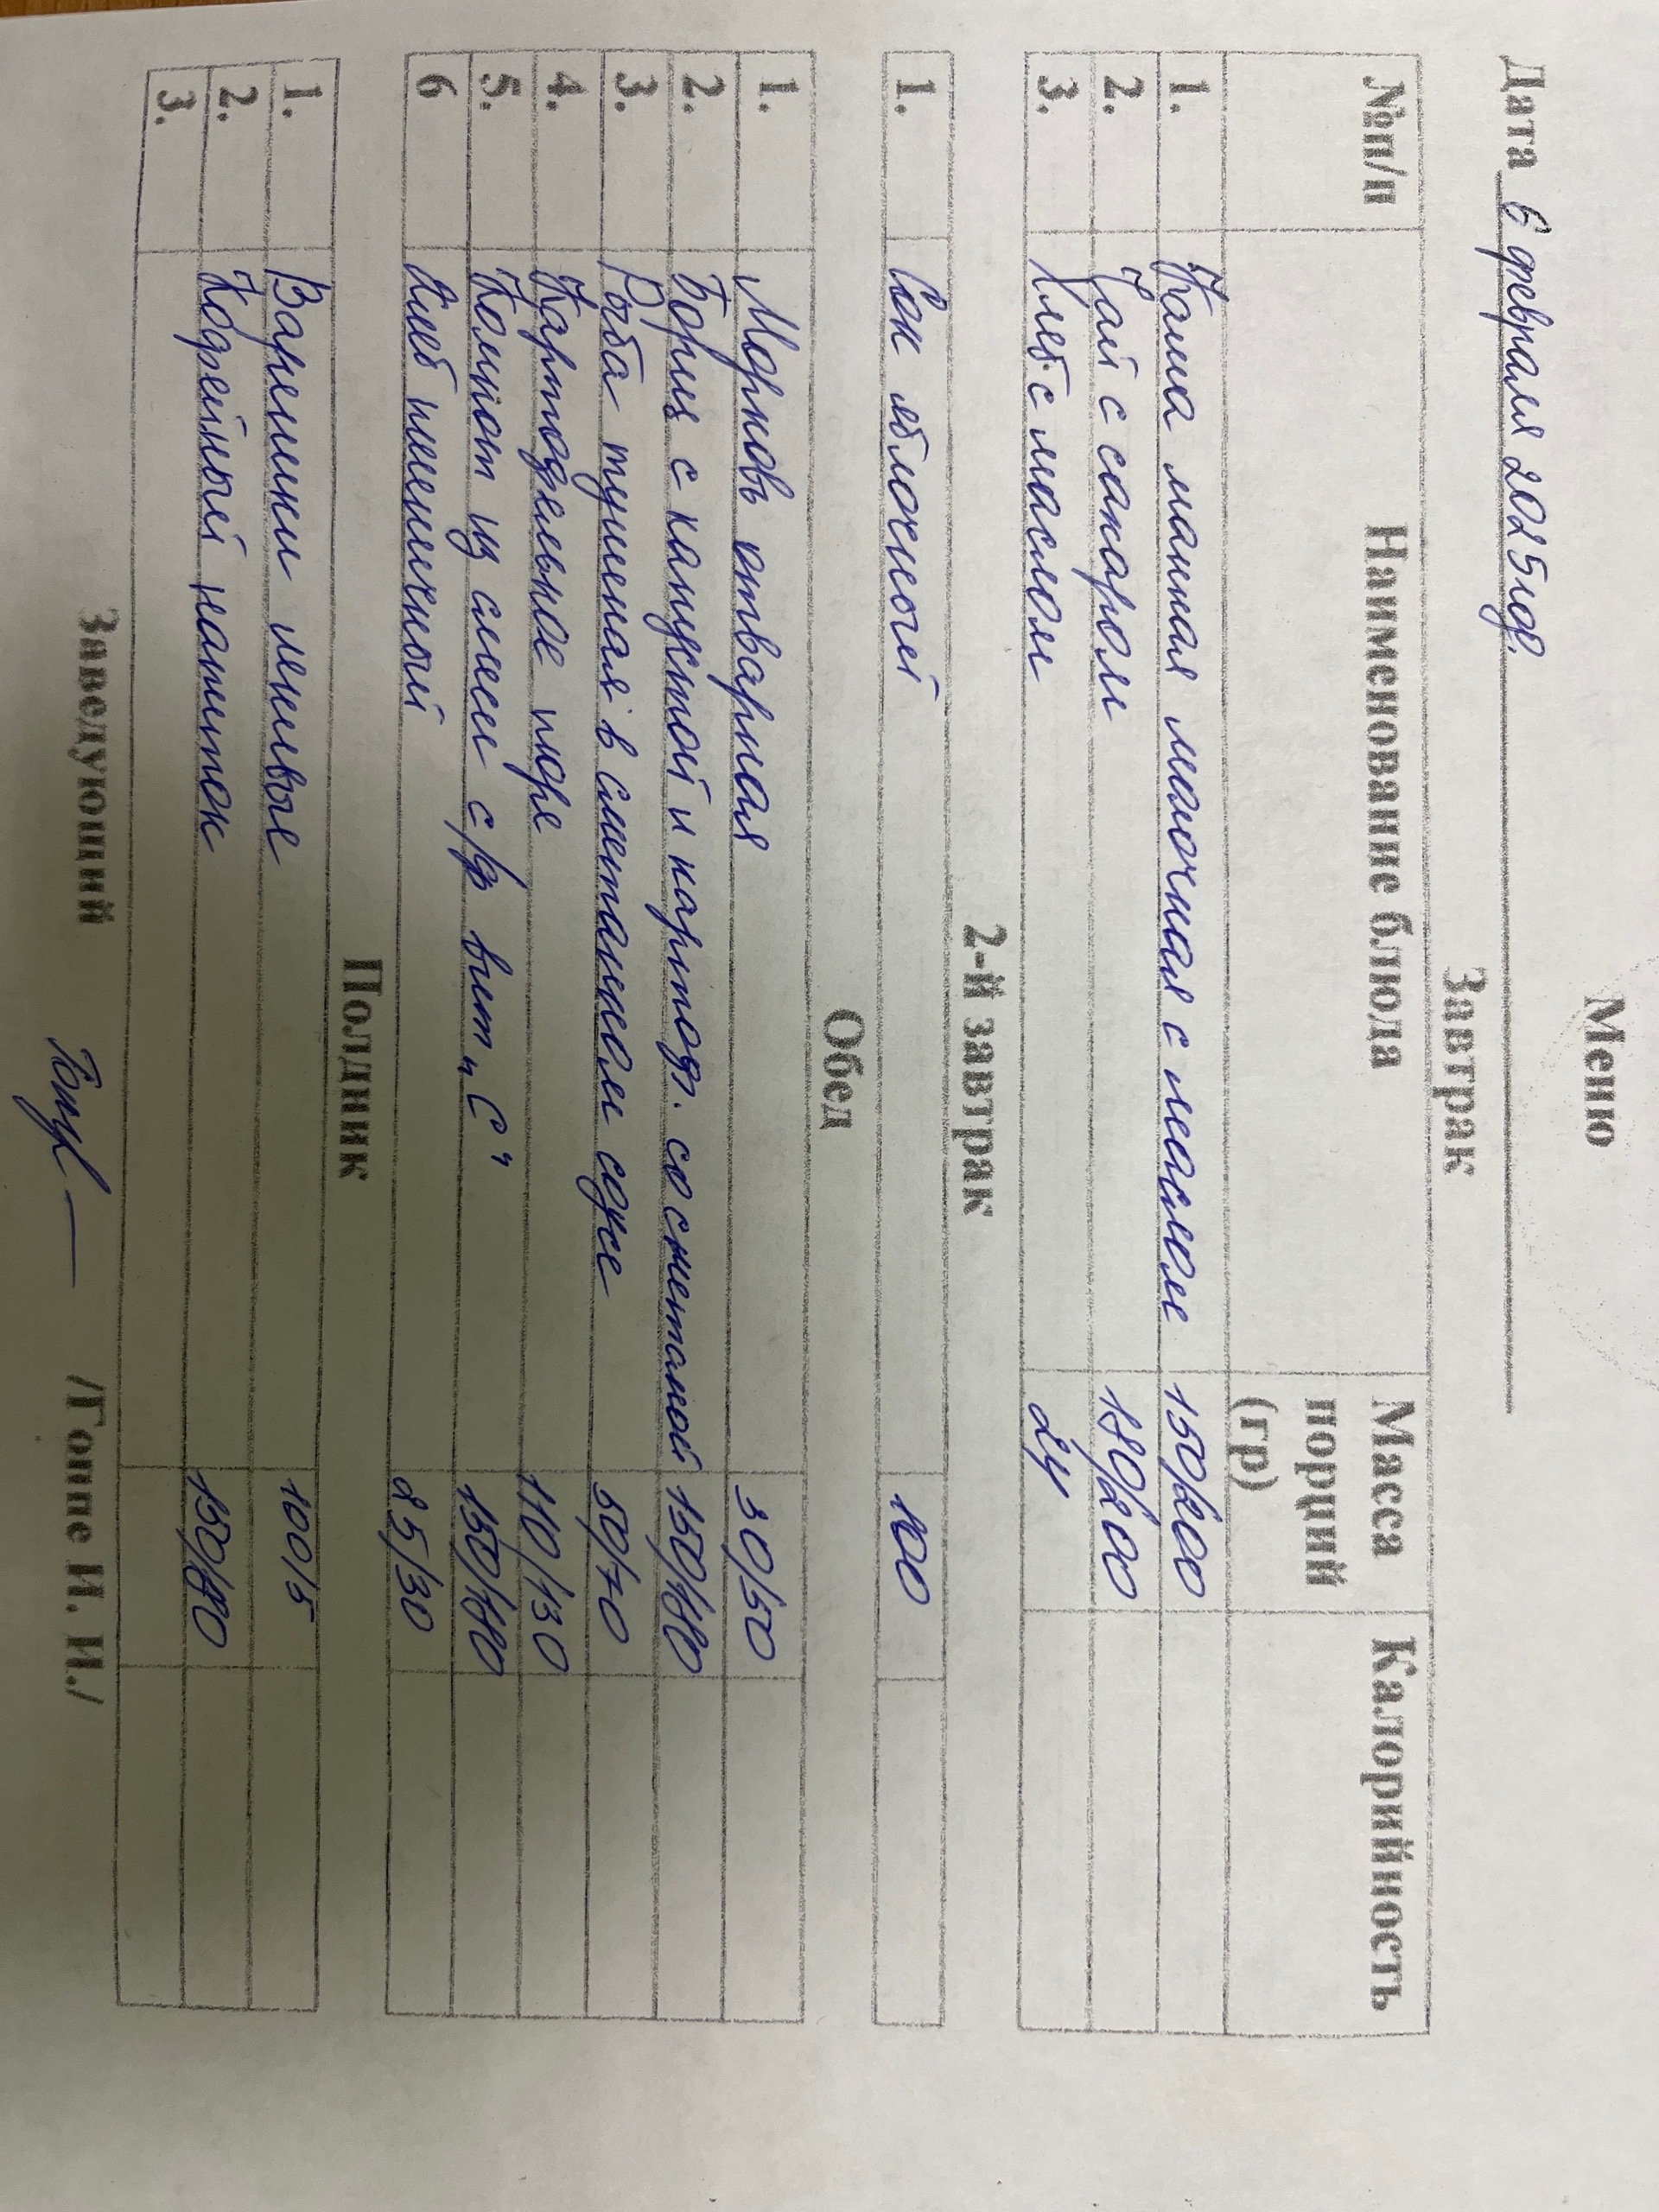 Меню
Дата 6 февраля 2025 год.
Завтрак
№п/п Наименование блюда Масса порций (гр) Калорийность
1. Каша манная молочная с маслом 150/200
2. Чай с сахаром 180/200
3. Хлеб с маслом 24
2-й завтрак
1. Сок яблочный 100
Обед
1. Морковь отварная 30/50
2. Борщ с капустой и картоф. со сметаной 150/180
3. Рыба тушеная в сметанном соусе 50/70
4. Картофельное пюре 110/130
5. Компот из смеси с/ф вит „С" 150/180
6 Хлеб пшеничный 25/30
Полдник
1. Вареники ленивые 100/5
2. Кофейный напиток 150/180
3.
Заведующий /Гоппе И. И./